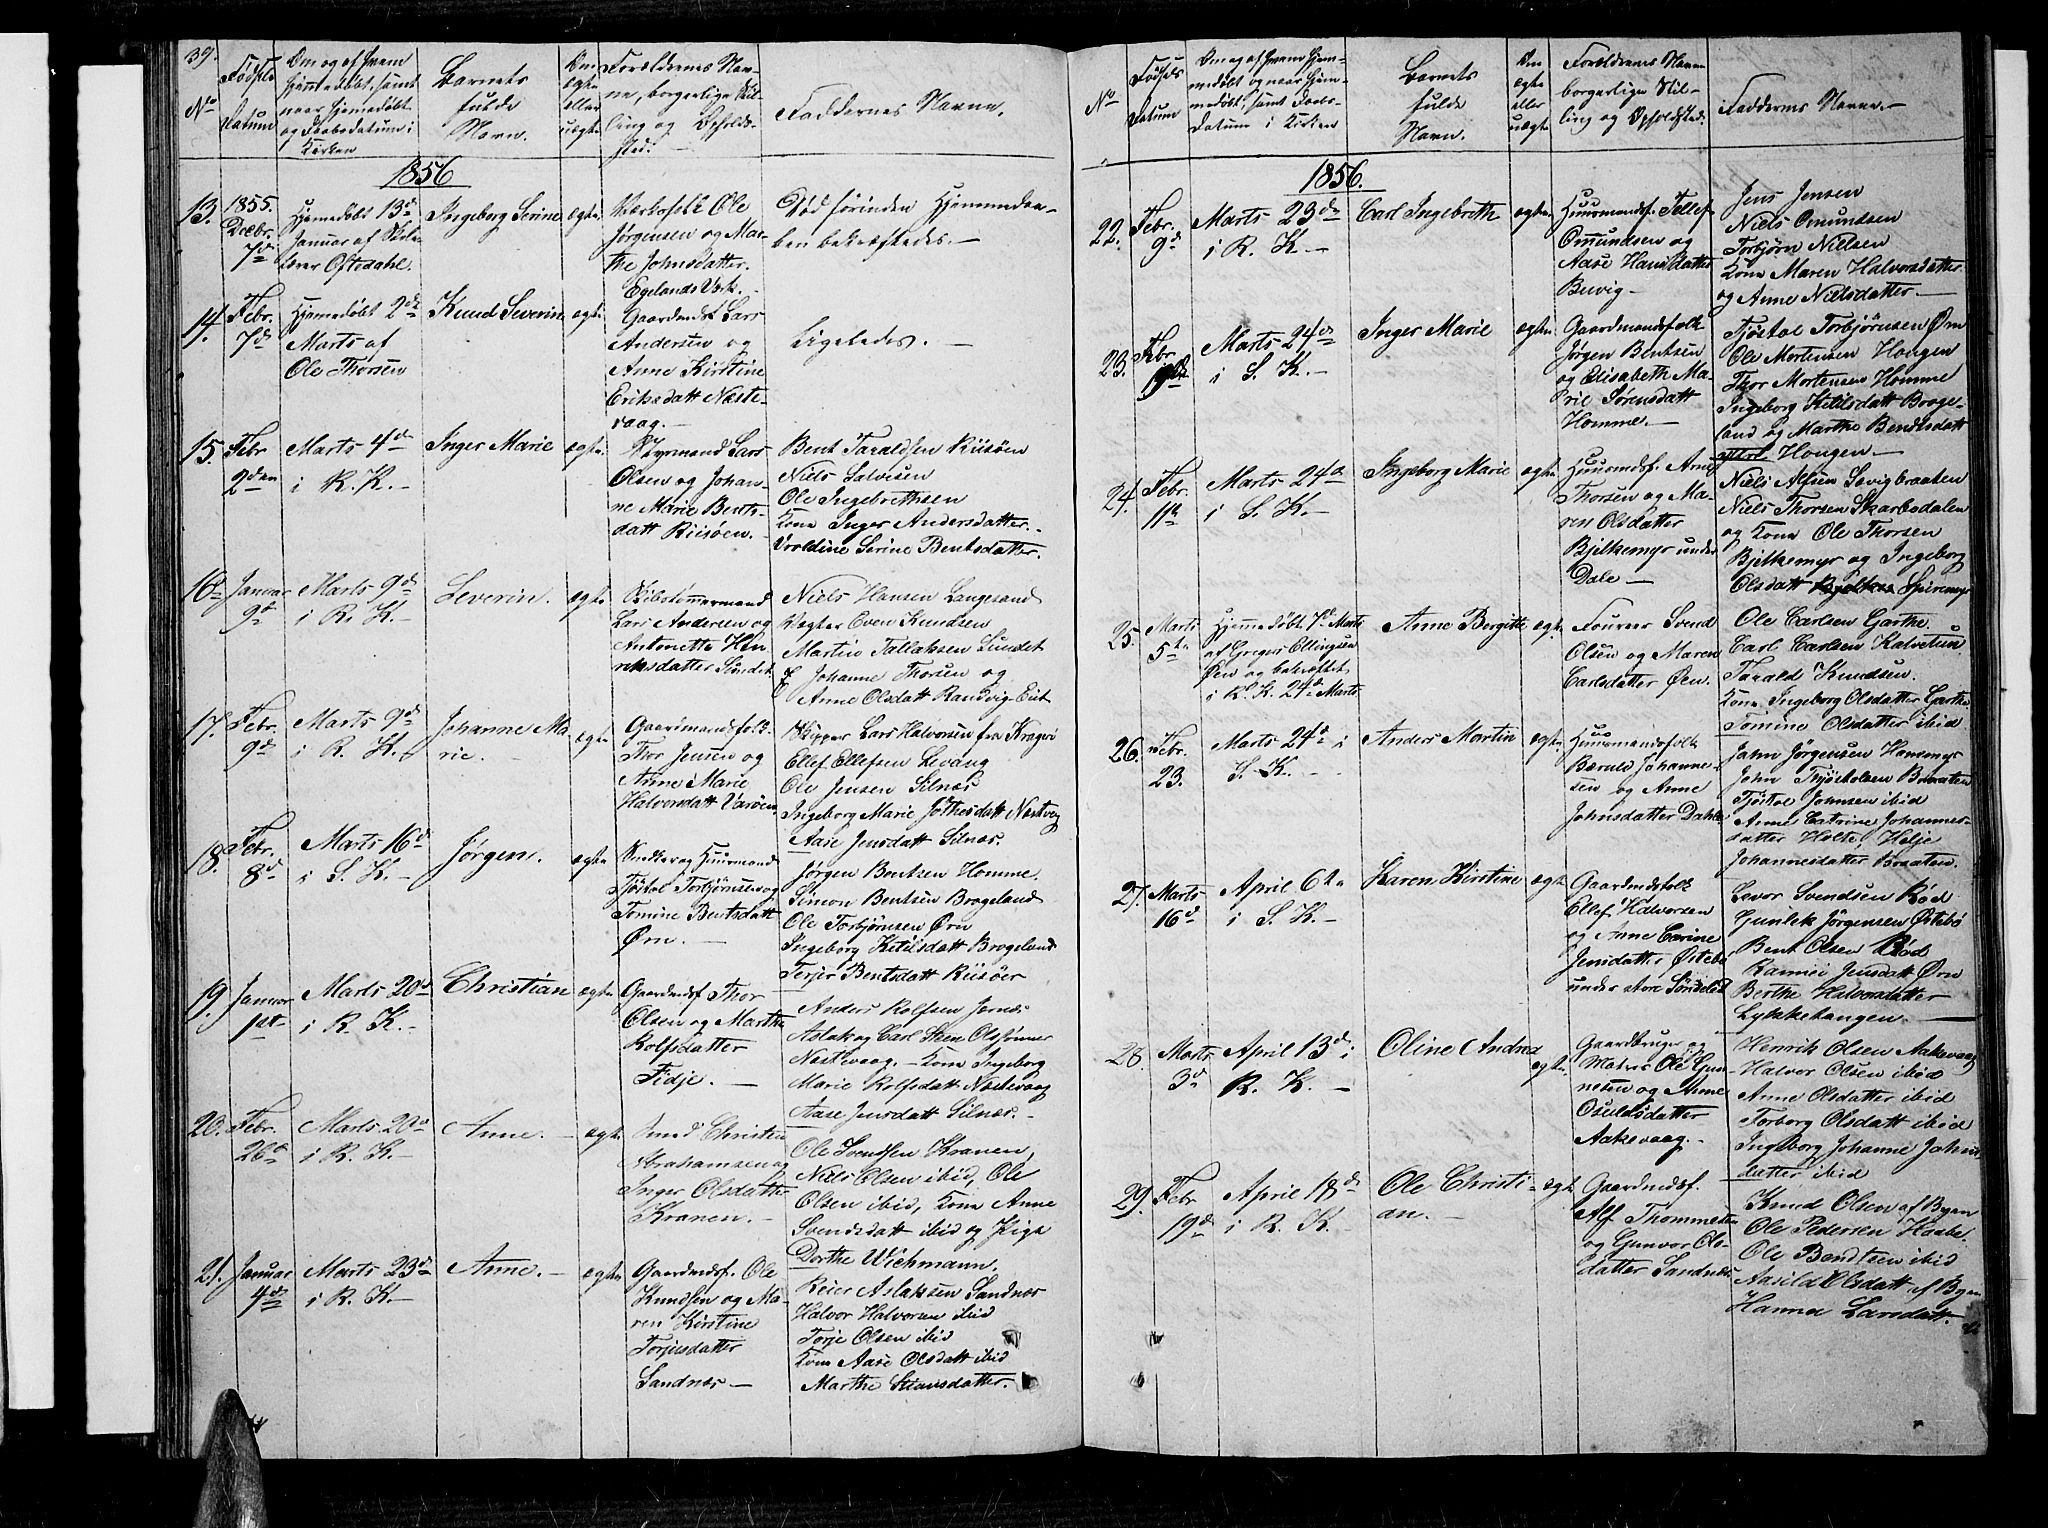 39.
No
Fødsels
Datum
Om og af hvem
hjemmedøbt, samt
naar hjemmedøbt
og Daabsdatum i
Kirken
Barnets
fulde
Navn.
Om
ægte
eller
uægte
Forældrenes Nav-
ne, borgerlige Stil-
ling og Opholds-
sted.
Faddernes Navne.
1856
13.
1855.
Decbr.
7de
Hjemedøbt 13de
Januar af Skole-
lærer Oftedahl.
Ingeborg Serine
ægte
Værksfolk Ole
Jørgensen og Mar-
the Johnsdatter.
Egelands Værk.
Død forinden Hjemmedaa-
ben bekræftedes.
14.
Febr.
7de
Hjemedøbt 2de
Marts af
Ole Thorsen
Knud Severin
ægte
Gaardmdsf. Lars
Andersen og
Anne Kirstine
Eriksdatt Næste-
vaag.
Ligeledes.
15.
Febr
2den
Marts 4de
i R. K.
Inger Marie
ægte
Styrmand Lars
Olsen og Johan-
ne Marie Bents-
datt Riisøen.
Bent Taraldsen Riisøen
Niels Salvesen
Ole Ingebrethsen
Kone Inger Andersdatter.
Uroldine Serine Bentsdatter.
16.
Januar
9de
Marts 9de
i R. K.
Severin.
ægte
Skibstømmermand
Lars Andersen og
Antonette Hen-
riksdatter Sundet
Niels Hansen Langesand
Vægter Even Knudsen
Martin Tallaksen Sundet
Johanne Thorsen og
Anne Olsdatt Randvig
17.
Febr.
9de
Marts 9de
i R. K.
Johanne Ma-
rie.
ægte
Gaardmandsfolk
Thor Jensen og
Anne Marie
Halvorsdatt Varøen
Skipper Lars Halvorsen fra Kragerø
Ellef Ellefsen Levang
Ole Jensen Silnæs
Ingeborg Marie Næstvog
Aase Jensdatt Silnæs.
18.
Febr.
8de
Marts 16de
i S. K.
Jørgen.
ægte
Snedker og Huusmand
Tjøstol Torbjørnsen og
Tomine Bentsdatt
Ørn.
Jørgen Bentsen Homme.
Simon Bentsen Brogeland
Ole Torbjørnsen Ørn
Ingeborg Ketilsdatt Brogeland
Terjer Bentsdatt Riisøer
19.
Januar
1ste
Marts 20de
i R. K.
Christian
ægte
Gaardmdsf. Thor
Olsen og Marthe
Rolfsdatter
Fidje.
Anders Rolfsen Jernæs
Aslak og Carl Sten Olssønner
Næstevaag. Kone Ingeborg
Marie Rolfsdatt Næstevaag
Aase Jensdatt Silnæs.
20.
Febr.
26de
Marts 20de
i R. K.
Anne.
ægte
Smed Christen
Abrahamsen og
Inger Olsdatter
Kranen.
Ole Svendsen Kranen,
Niels Olsen ibid, Ole
Olsen ibid, Kone Anne
Svendsdatt ibid og Pige
Dorthe Wichmann.
21.
Januar
4de
Marts 23de
i R. K.
Anne.
ægte
Gaardmdsf. Ole
Knudsen og Ma-
ren Kirstine
Torjusdatter
Sandnæs
Reier Aslaksen Sandnæs
Halvor Halvorsen ibid
Torje Olsen ibid
Kone Aase Olsdatt ibid
Marthe Stiansdatter.
No
Fødsels
Datum
Om og af hvem hjem-
medøbt og naar hjem-
medøbt, samt Daabs-
datum i Kirken
Barnets
fulde
Navn.
Om
ægte
eller
uægte
Forældrenes Navne
borgerlige Stil-
ling og Opholdsted.
Faddernes Navne.
1856.
22.
Febr.
9de
Marts 23de
i R. K.
Carl Ingebreth
ægte
Huusmandsf. Tellef
Omundsen og
Aase Hansdatter
Buvig
Jens Jensen
Niels Omundsen
Torbjørn Nielsen
Kone Maren Halvorsdatter
og Anne Nielsdatter.
23.
Febr.
19de
Marts 24de
i S. K.
Inger Marie
ægte
Gaardmandsfolk
Jørgen Bentsen
og Elisabeth Ma-
rie Sørensdatt
Homme.
Tjøstol Torbjørnsen Ørn
Ole Mortensen Hougen
Thor Mortensen Homme
Ingeborg Ketilsdatt Broge-
land og Marthe Bendtsdatt
Hougen
24.
Febr.
11te
Marts 24de
i S. K.
Ingeborg Marie
ægte
Huusmdsf. Arne
Thorsen og Ma-
ren Olsdatter
Bjelkemyr under
Dale
Niels Alfsen Sevigbraaten
Niels Thorsen Skarbodalen
og Kone Ole Thorsen
Bjelkemyr og Ingeborg
Olsdatt Spiremyr
25.
Marts
5te
Hjemmedøbt 7de Marts
af Greger Ellingsen
Øen og bekræftet
i R. K. 24de Marts
Anne Bergitte
ægte
Foureer Svend
Olsen og Maren
Carlsdatter Øen.
Ole Carlsen Garthe.
Carl Carlsen Kalvetun
Tarald Knudsen.
Kone Ingeborg Olsdatter Garthe
Tomine Olsdatter ibid
26.
Febr.
23.
Marts 24de i
S. K.
Anders Martin
ægte
Huusmandsfolk
Bærulf Johanne-
sen og Anne
Johnsdatter Dahle
Jahn Jørgensen Hansmyr
John Tjøstolsen Braaten
Tjøstol Johnsen ibid
Anne Catrine Johannes-
datter Holte, Helje
Johannesdatter Braaten.
27.
Marts
16de
April 6te
i S. K.
Karen Kirstine
ægte
Gaardmdsfolk
Ellef Halvorsen
og Anne Carine
Jensdatter Østebø
under store Søndeled
Levor Svendsen Rød
Gunlek Jørgensen Østebø
Bent Olsen Rød
Rannei Jensdatt Ørn
Berthe Halvorsdatter
Lykketangen.
28.
Marts
3de
April 13de i
R. K.
Oline Andrea
ægte
Gaardbruger og
Matros Ole Gun-
nesen og Anne
Osuldsdatter
Aakevaag.
Henrik Olsen Aakevaag
Halvor Olsen ibid
Anne Olsdatter ibid
Torborg Olsdatt ibid
Ingeborg Johanne Johns-
datter ibid
29.
Febr
19de
April 18de
i R. K.
Ole Christi-
an.
ægte
Gaardmdsf.
Alf Thommesen
og Gunvor Ols-
datter Sandnæs
Knud Olsen af Byen
Ole Pedersen Haabe
Ole Bendtsen ibid
Aasild Olsdatt af Byen
Hanna Larsdatt.